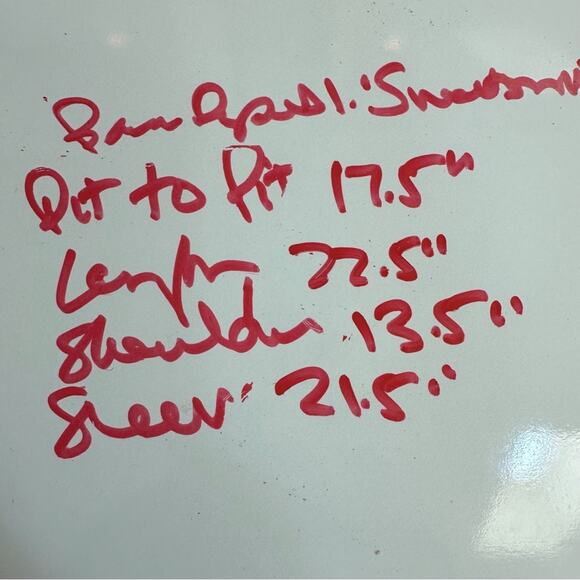 Pit to Pit 17.5"
Length 22.5"
Shoulder 13.5"
Sleeve 21.5"